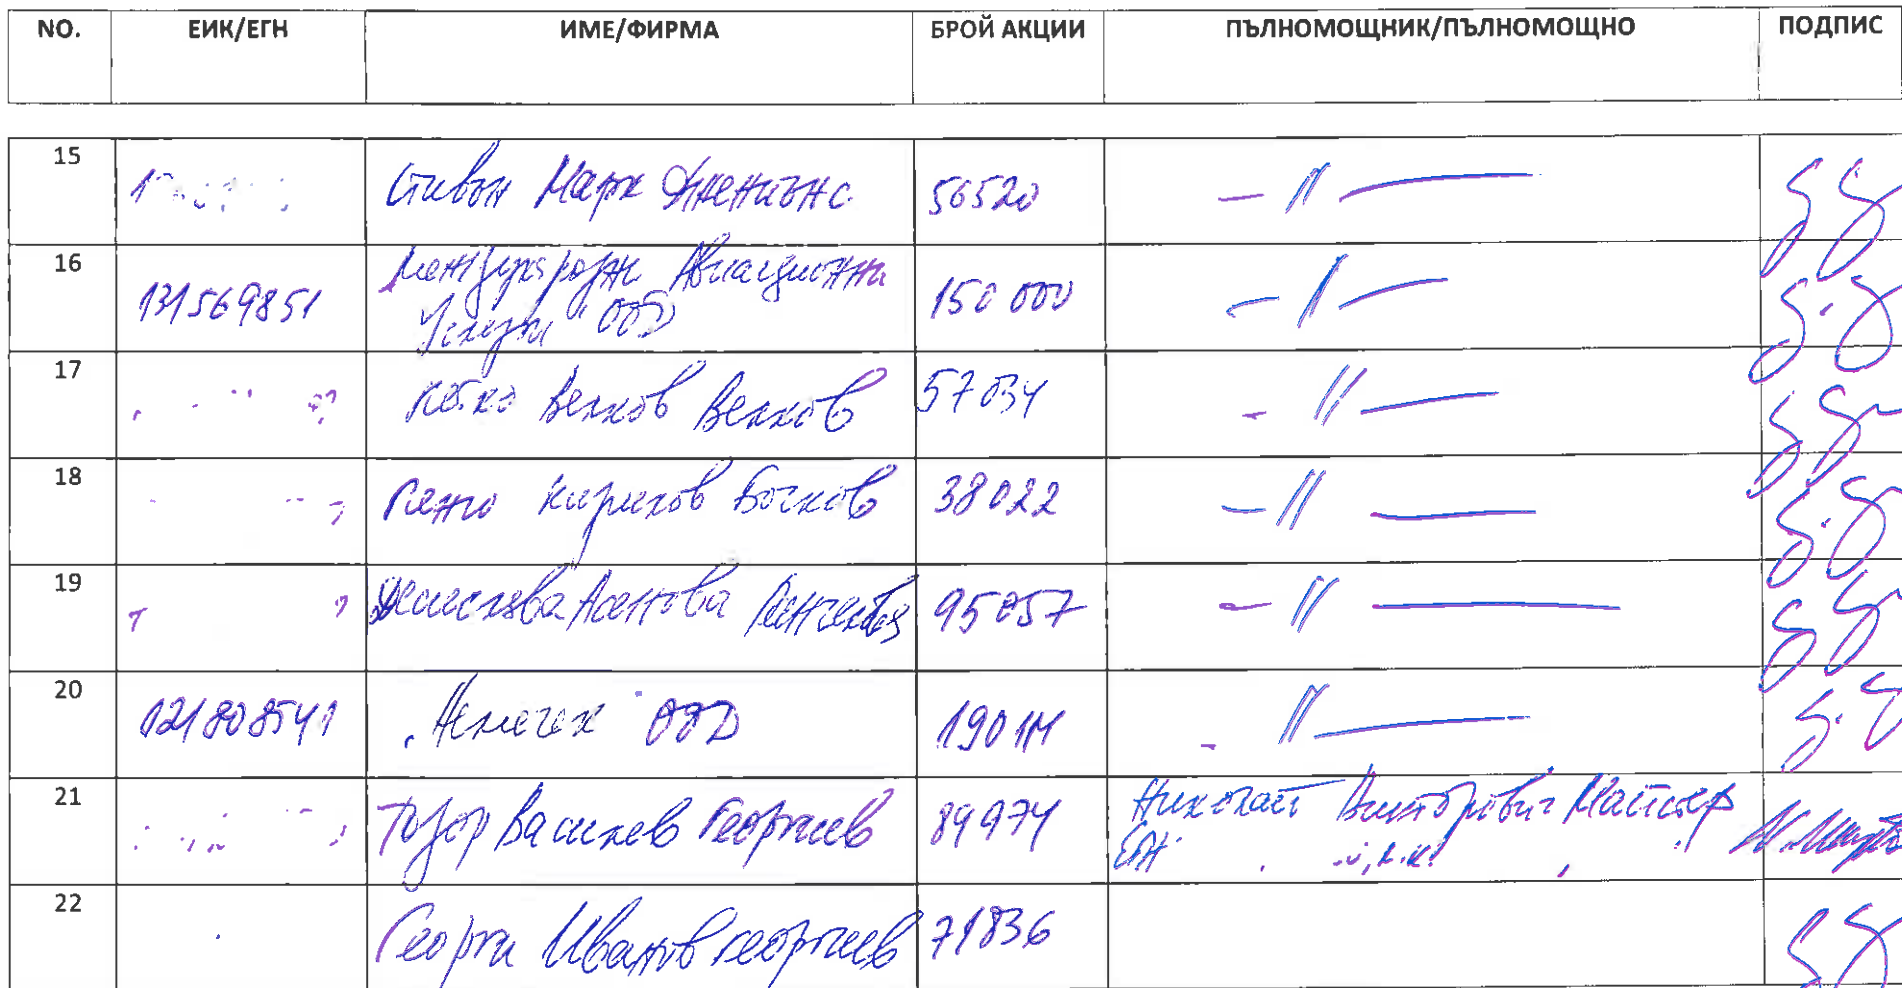 NO. ЕИК/ЕГН ИМЕ/ФИРМА БРОЙ АКЦИИ ПЪЛНОМОЩНИК/ПЪЛНОМОЩНО ПОДПИС
15 Стивън Марк Дженкинс 56520 — // —
16 131569851 Международни Авиационни 150 000 — // —
Услуги" ООД
17 Петко Велков Велков 57034 - // —
18 Пенко Кирилов Бочков 38022 — // —
19 Десислава Асенова Панчелиева 95057 — // —
20 121808541 "Немечек" ООД 190114 - // —
21 Тодор Василев Георгиев 89974 Николай Викторович Майстер
ЕГН
22 Георги Иванов Георгиев 71836